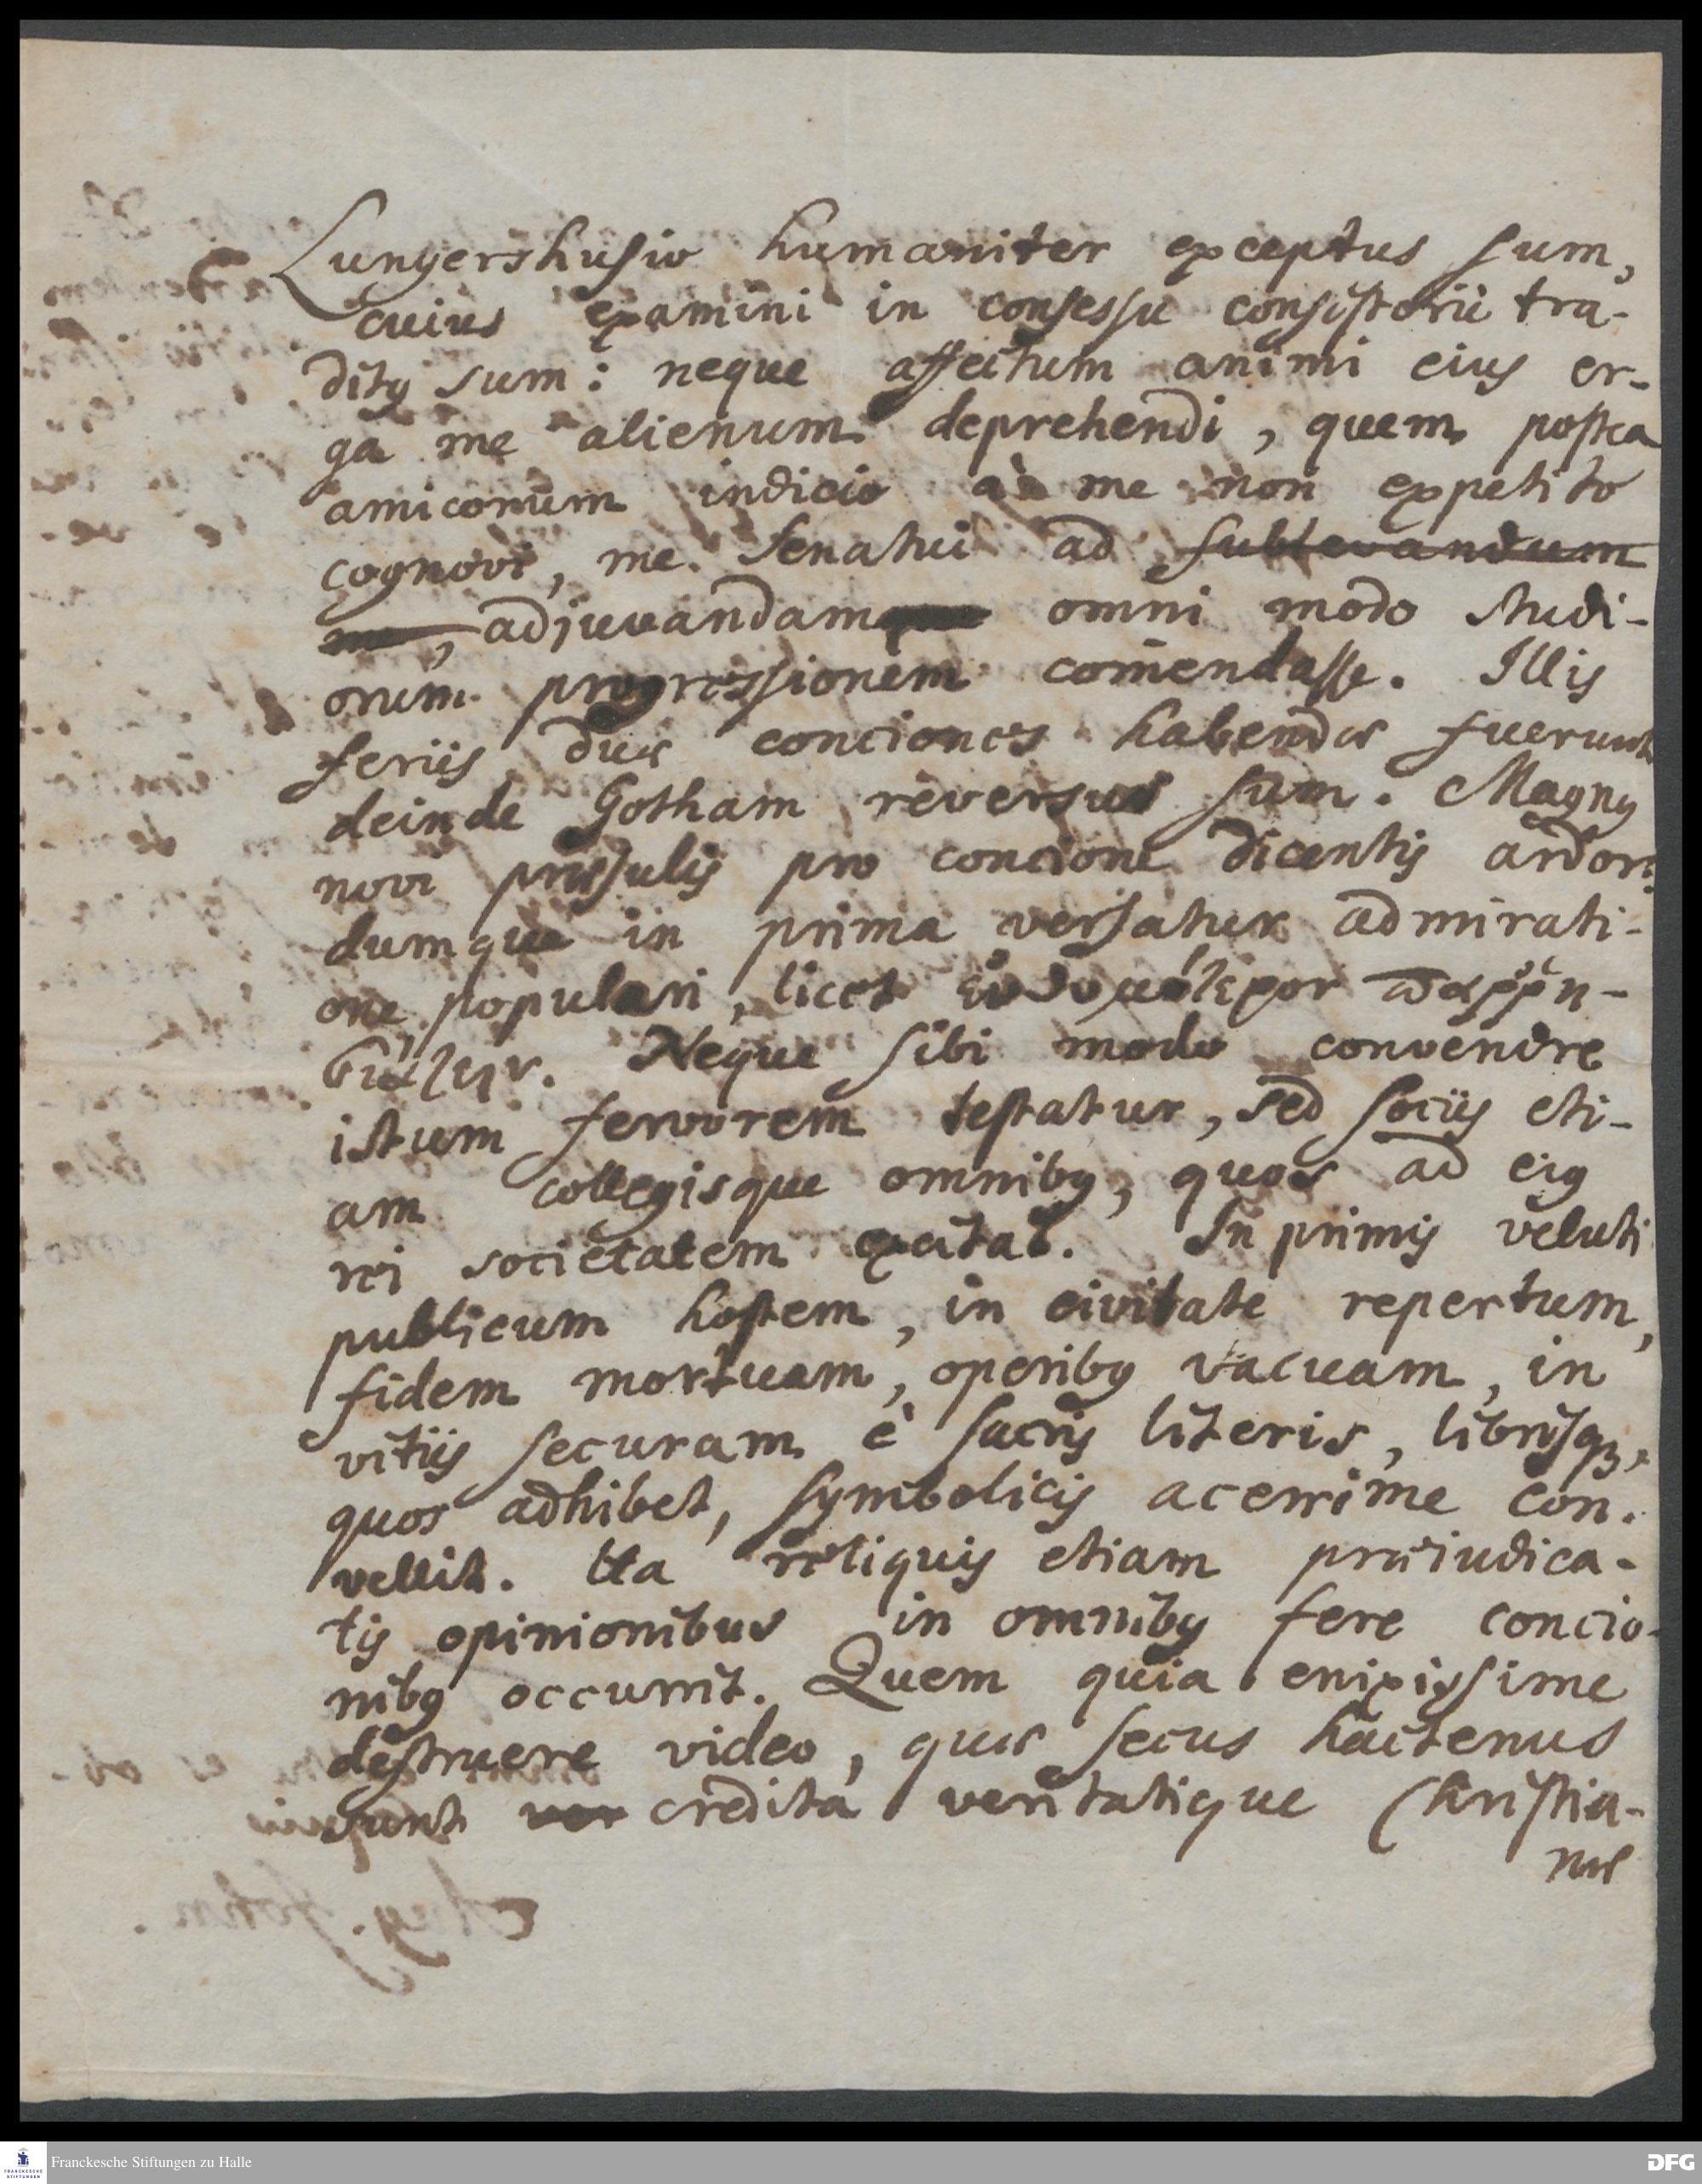 Lungershusio humaniter exceptus sum,
cuius examini in consessu consistorii tra-
ditq sum: neque affectum animi eius er-
ga me alienum deprehendi, quem postea
amicorum indicio à me non expetito
cognovi, me Senatui ad sublevandum
me, adjuvandam omni modo studi-
orum progressionem com̄endasse. Illis
feriis duæ conciones habendæ fuerunt
deinde Gotham reversus sum. Magnq
novi præsulis pro concione dicentis ardor:
dumque in prima versatur admirati-
one populari, licet παῤῥη-
σιάζειν. Neque sibi modo convenire
istum fervorem testatur, sed sociis eti-
am collegisque omnibq, quos ad eiq
rei societatem excitat. In primis veluti
publicum hostem, in civitate repertum,
fidem mortuam, operibq vacuam, in
vitiis securam è sacris literis, librisqȝ,
quos adhibet, symbolicis acerrime con-
vellit. Ita reliquis etiam præiudica-
tis opinionibus in omnibq fere concio-
nibq occurrit. Quem quia enixissime
destruere video, quæ secus hactenus
sunt credita veritatique Christia-
næ
Franckesche Stiftungen zu Halle
FRANCKESCHE
STIFTUNGEN
DFG